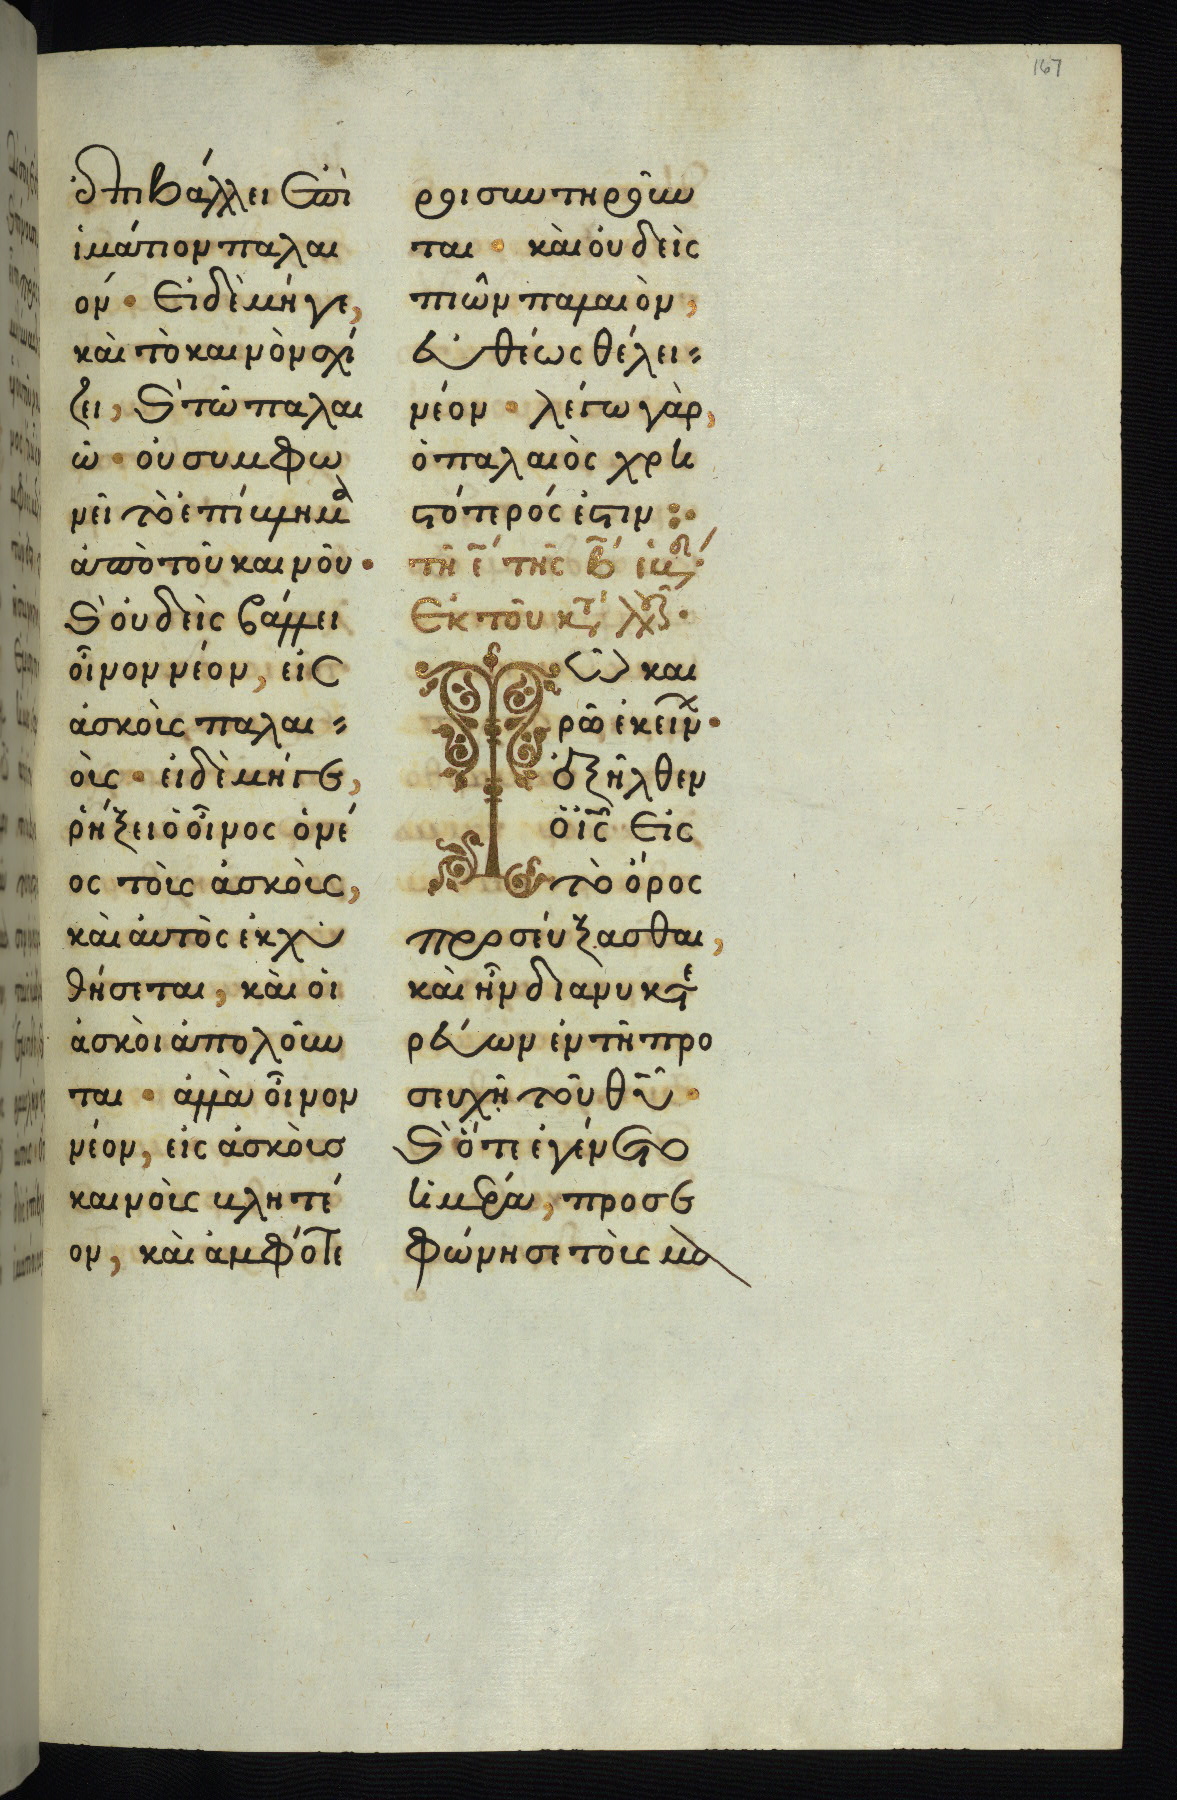 167
ἐπιβάλλει ἐπὶ
ἱμάτιον παλαι
όν · Εἰ δὲ μήγε,
καὶ τὸ καινὸν σχί
ζει, ϗ τῶ παλαι
ῶ · οὐ συμφω
νεῖ τὸ ἐπίβλημα
ἀπὸ τοῦ καινοῦ ·
ϗ οὐδεὶς βάλλει
οἶνον νέον, εἰς
ἀσκοὶς παλαι-
οὶς · εἰ δὲ μήγε,
ρήξει ὁ οἶνος ὁ νέ
ος τοὶς ἀσκοὶς,
καὶ αὐτὸς ἐκχυ
θήσεται, καὶ οἱ
ἀσκοὶ ἀπολοῦν
ται · ἀλλὰ οἶνον
νέον, εἰς ἀσκοὶσ
καινοὶς βλητέ
ον, καὶ ἀμφότε
ροι συντηροῦν
ται · καὶ οὐδεὶς
πιῶν παλαιὸν,
εὐθέως θέλει-
νέον · λέγω γὰρ,
ὁ παλαιὸς χρη
στότερός ἐστιν :·
τῆ ε̄ τῆς β̄ ἑβδ
Ἐκ τοῦ κτ λκ ·
Τῶ και
ρῶ ἐκείν ·
ἐξῆλθεν
ὁ ἰ̅ς̅ Εἰς
τὸ ὄρος
προσεύξασθαι,
καὶ ἦν διανυκτε
ρεύων ἐν τῆ προ
σευχῆ τοῦ θ̅υ̅ ·
ϗ ὅτε ἐγένετο
ἡμέρα, προσε
φώνησε τοὶς μα